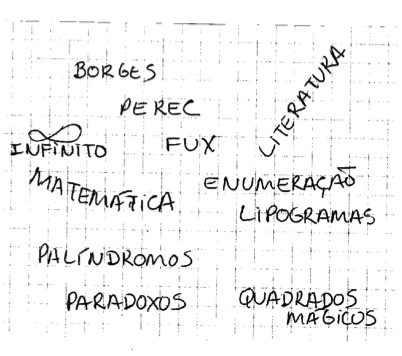 BORGES
PEREC
LITERATURA
∞
INFINITO
FUX
MATEMÁTICA
ENUMERAÇÃO
LIPOGRAMAS
PALÍNDROMOS
PARADOXOS
QUADRADOS
MÁGICOS